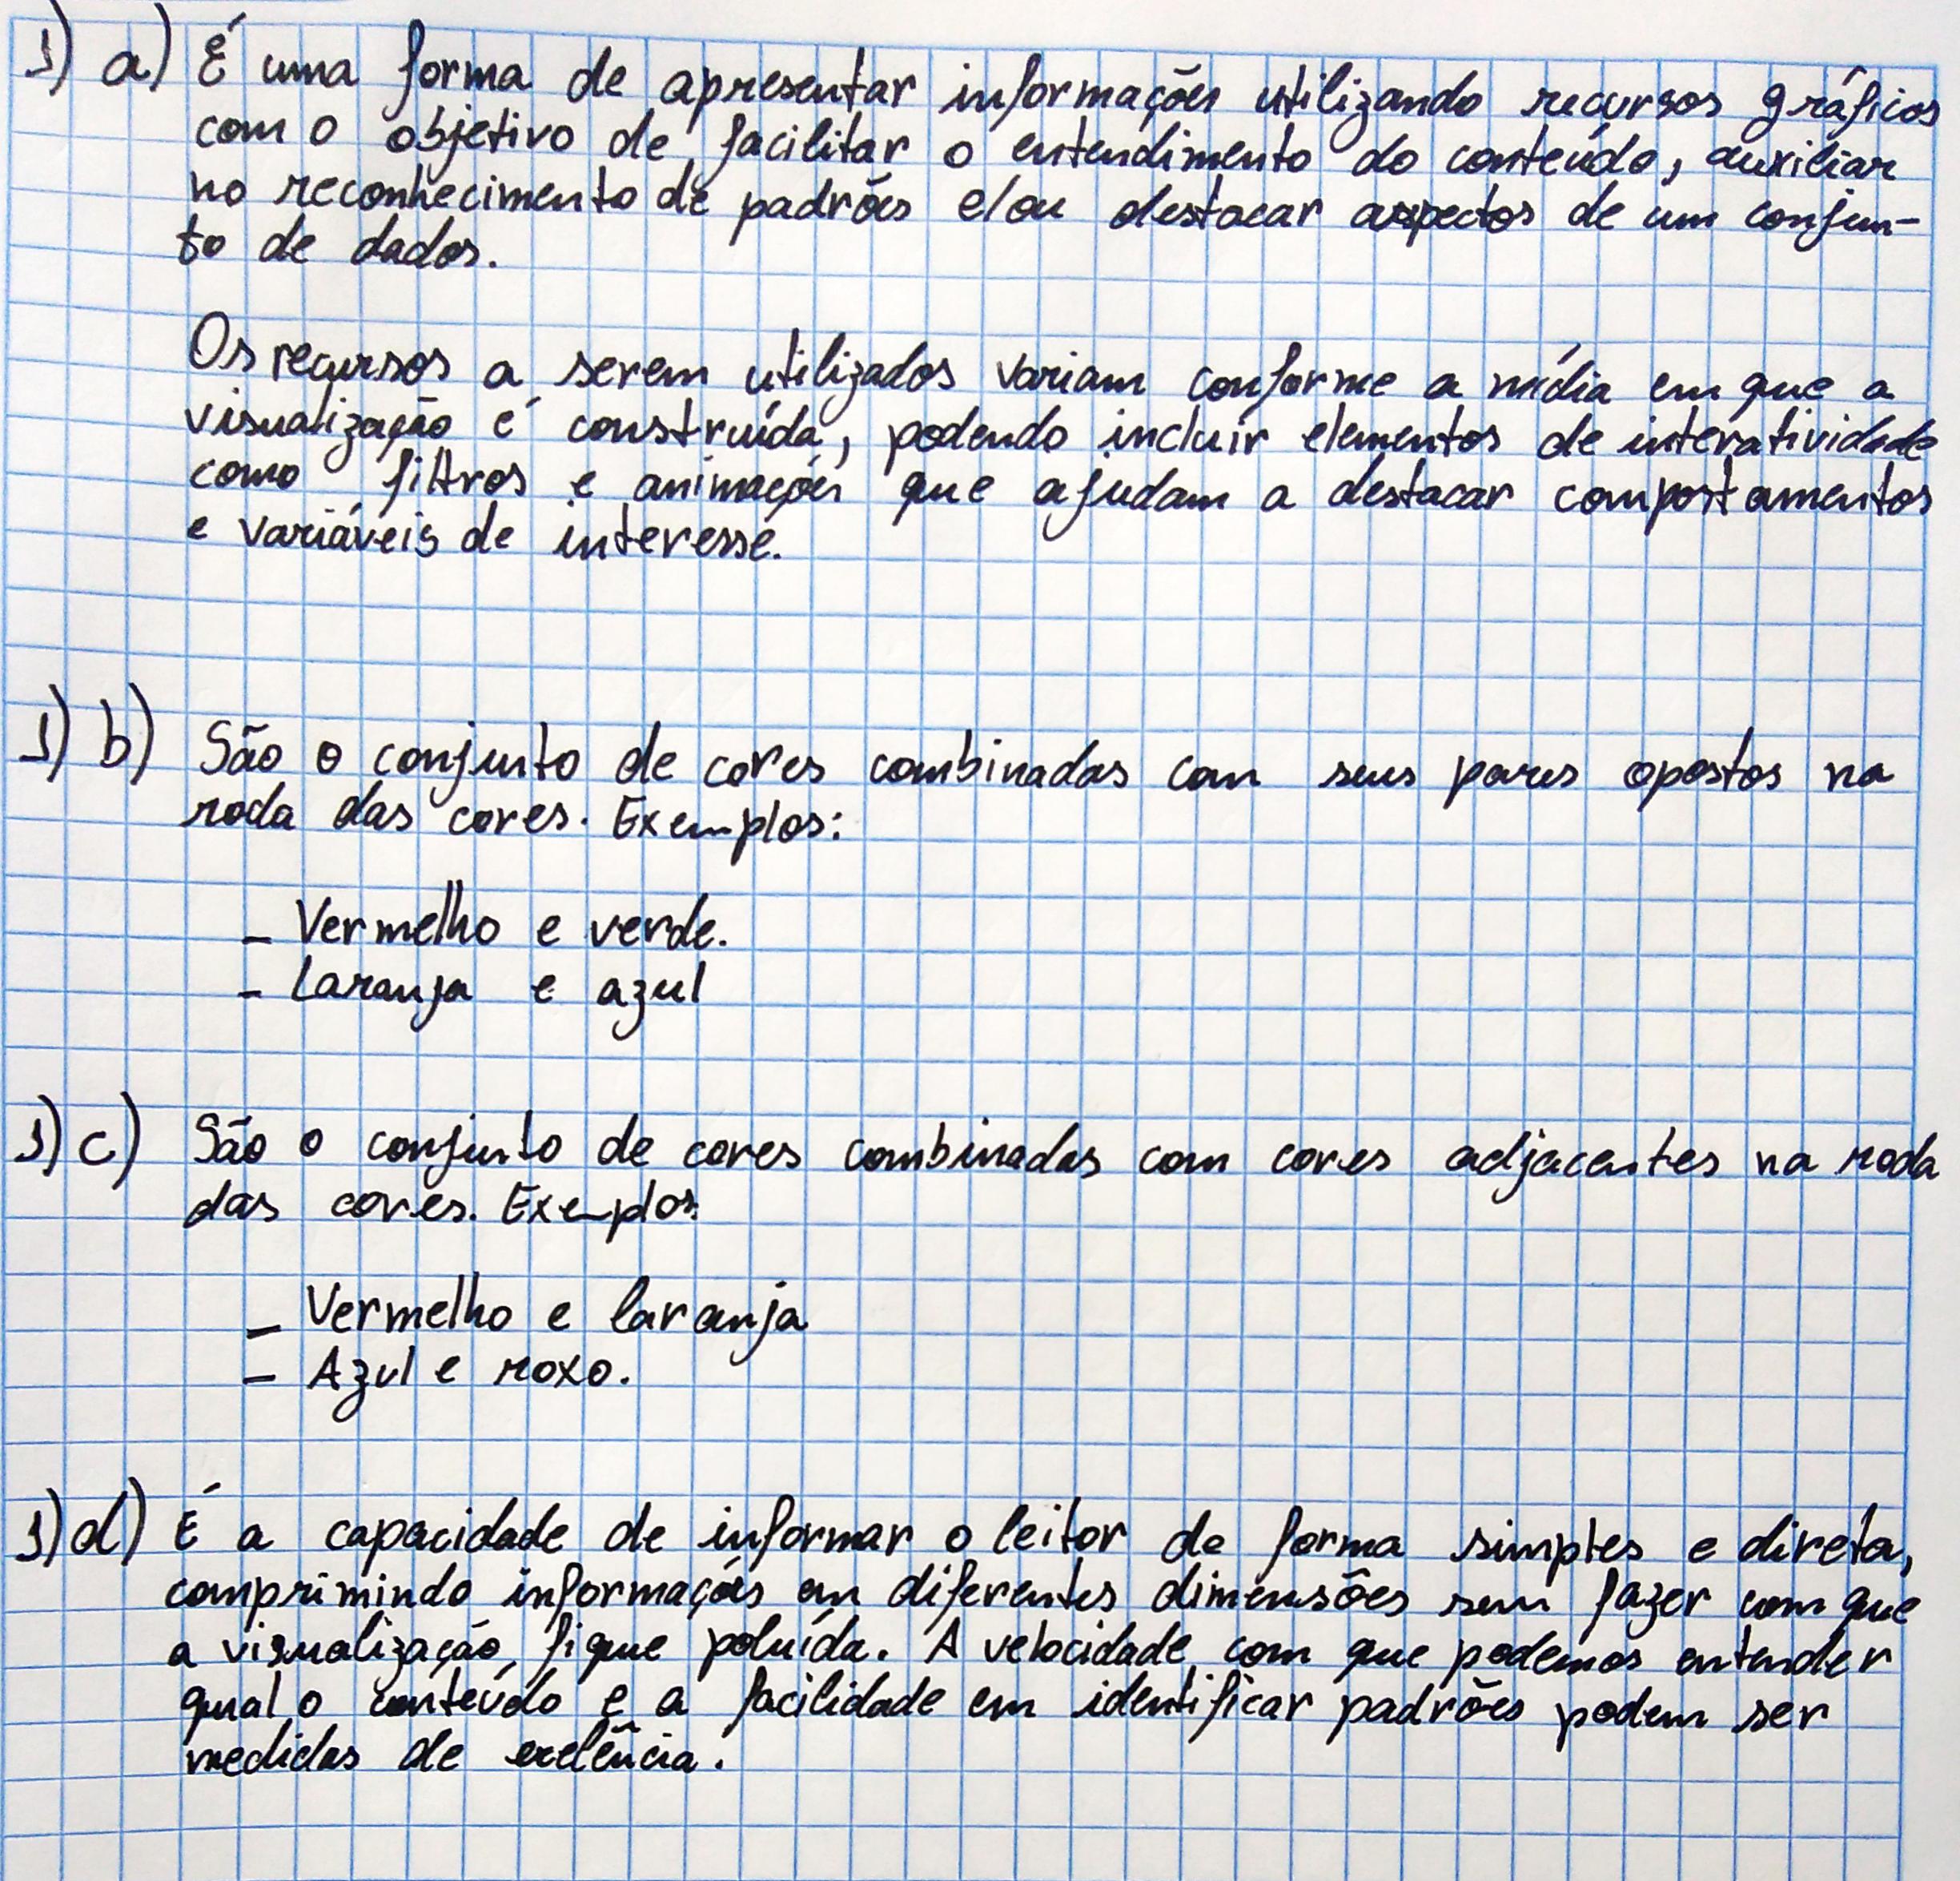 1) a) É uma forma de apresentar informações utilizando recursos gráficos
com o objetivo de facilitar o entendimento do conteúdo, auxiliar
no reconhecimento de padrões e/ou destacar aspectos de um conjun-
to de dados.
Os recursos a serem utilizados variam conforme a mídia em que a
visualização é construída, podendo incluir elementos de interatividade
como filtros e animações que ajudam a destacar comportamentos
e variáveis de interesse.
1) b) São o conjunto de cores combinadas com seus pares opostos na
roda das cores. Exemplos:
- Vermelho e verde.
- Laranja e azul
1) c) São o conjunto de cores combinadas com cores adjacentes na roda
das cores. Exemplos:
- Vermelho e laranja
- Azul e roxo.
1) d) É a capacidade de informar o leitor de forma simples e direta,
comprimindo informações em diferentes dimensões sem fazer com que
a visualização fique poluída. A velocidade com que podemos entender
qual o conteúdo e a facilidade em identificar padrões podem ser
medidas de exelência.